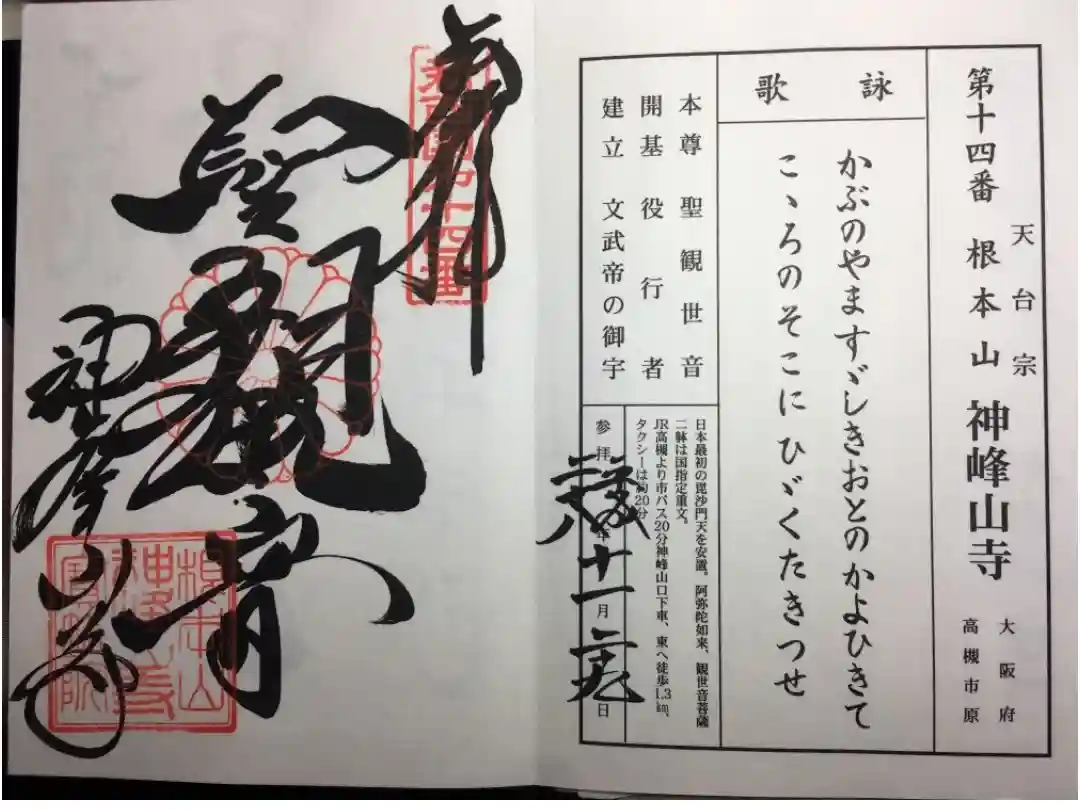 第十四番 根本山 神峰山寺
天台宗
大阪府
高槻市原
詠歌
かぶのやますゞしきおとのかよひきて
こゝろのそこにひゞくたきつせ
本尊 聖観世音
開基 役行者
建立 文武帝の御宇
日本最初の毘沙門天を安置。阿弥陀如来、観世音菩薩
二躰は国指定重文。
JR高槻より市バス20分神峰山口下車、東へ徒歩1.3㎞、
タクシーは約20分
参拝 年十一月二十九日
奉拝
新西国第十四番
聖観音
神峯山寺